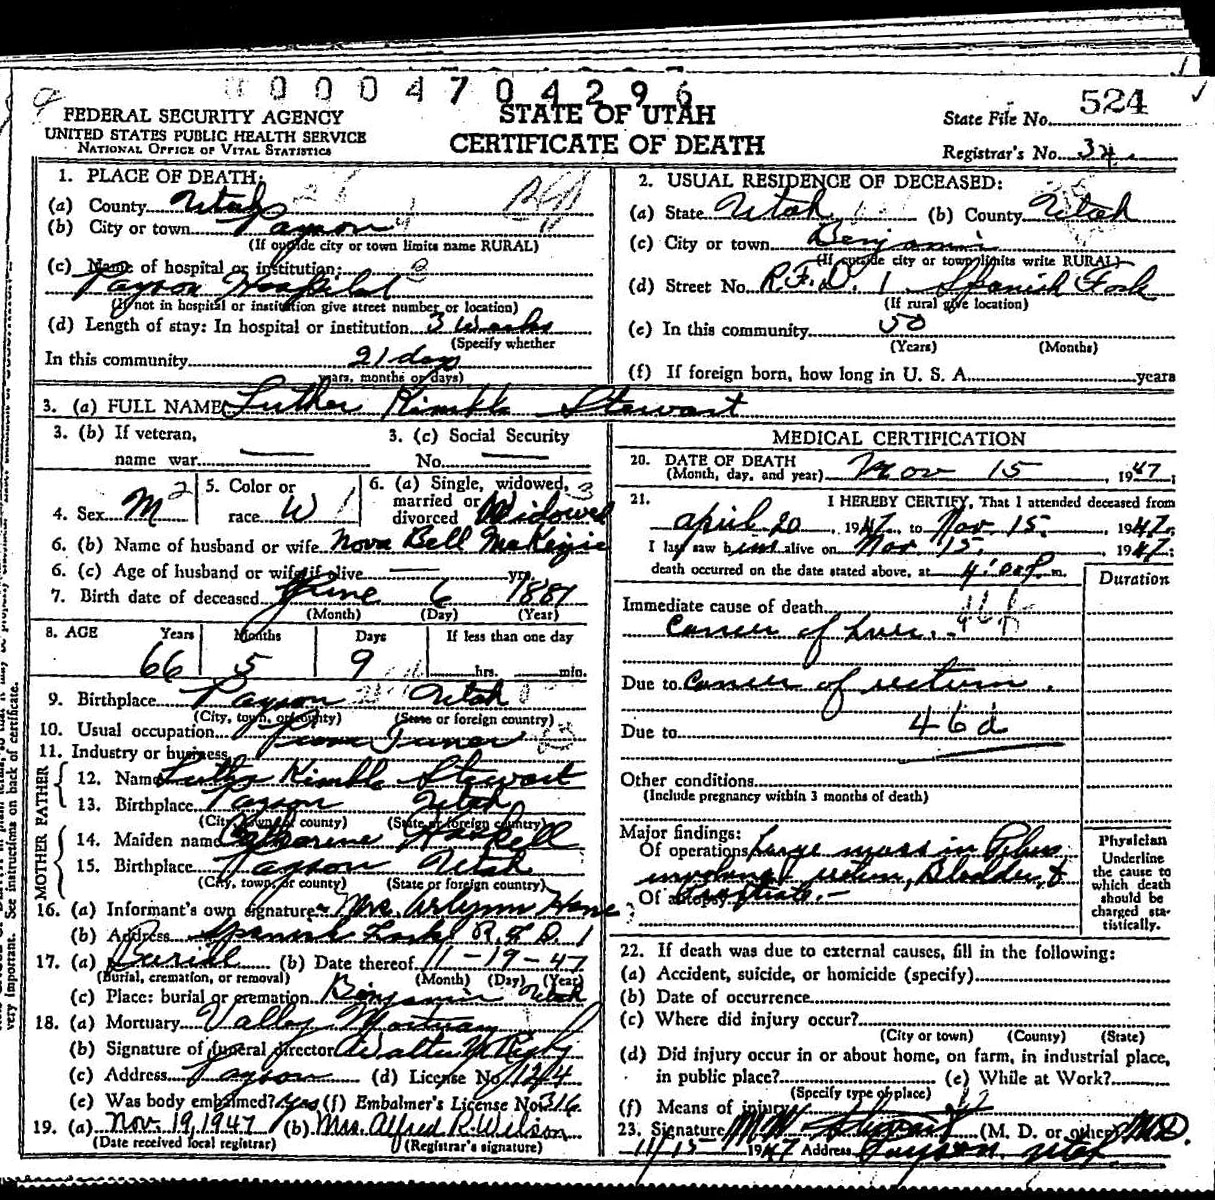 00004704296
FEDERAL SECURITY AGENCY
UNITED STATES PUBLIC HEALTH SERVICE
NATIONAL OFFICE OF VITAL STATISTICS
STATE OF UTAH
CERTIFICATE OF DEATH
State File No. 524
Registrar's No. 34
1. PLACE OF DEATH:
(a) County Utah
(b) City or town Payson
(If outside city or town limits name RURAL)
(c) Name of hospital or institution:
Payson Hospital
(If not in hospital or institution give street number or location)
(d) Length of stay: In hospital or institution 3 Weeks
(Specify whether
In this community 21 days
years, months or days)
2. USUAL RESIDENCE OF DECEASED:
(a) State Utah (b) County Utah
(c) City or town Benjamin
(If outside city or town limits write RURAL)
(d) Street No. R.F.D. 1 Spanish Fork
(If rural give location)
(e) In this community 50
(Years) (Months)
(f) If foreign born, how long in U. S. A. years
3. (a) FULL NAME Luther Kimble Stewart
3. (b) If veteran,
name war
3. (c) Social Security
No.
4. Sex M
5. Color or
race W
6. (a) Single, widowed,
married or
divorced Widowed
6. (b) Name of husband or wife Nova Bell McKenzie
6. (c) Age of husband or wife if alive yrs.
7. Birth date of deceased June 6 1881
(Month) (Day) (Year)
8. AGE Years Months Days If less than one day
66 5 9 hrs. min.
9. Birthplace Payson Utah
(City, town, or county) (State or foreign country)
10. Usual occupation
11. Industry or business
FATHER
12. Name Luther Kimble Stewart
13. Birthplace Payson Utah
(City, town or county) (State or foreign country)
MOTHER
14. Maiden name Catharine Haskell
15. Birthplace Payson Utah
(City, town, or county) (State or foreign country)
16. (a) Informant's own signature Mrs. Arlynn Hone
(b) Address Spanish Fork R.F.D. 1
17. (a) Burial (b) Date thereof 11-19-47
(Burial, cremation, or removal) (Month) (Day) (Year)
(c) Place: burial or cremation Benjamin Utah
18. (a) Mortuary Valley Mortuary
(b) Signature of funeral director Walter M Rigby
(c) Address Payson (d) License No. 1214
(e) Was body embalmed? Yes (f) Embalmer's License No. 316
19. (a) Nov. 19, 1947 (b) Mrs. Alfred R. Wilson
(Date received local registrar) (Registrar's signature)
MEDICAL CERTIFICATION
20. DATE OF DEATH
(Month, day, and year) Nov 15, 1947;
21. I HEREBY CERTIFY, That I attended deceased from
April 20, 1947, to Nov. 15, 1947;
I last saw him alive on Nov 15, 1947;
death occurred on the date stated above, at 4:00 P. m.
Duration
Immediate cause of death
Cancer of liver.
Due to Cancer of rectum.
Due to 46d
Other conditions
(Include pregnancy within 3 months of death)
Major findings:
Of operations Large mass in Pelvis
involving rectum, Bladder, &
Of autopsy prostate.
Physician
Underline
the cause to
which death
should be
charged sta-
tistically.
22. If death was due to external causes, fill in the following:
(a) Accident, suicide, or homicide (specify)
(b) Date of occurrence
(c) Where did injury occur?
(City or town) (County) (State)
(d) Did injury occur in or about home, on farm, in industrial place,
in public place? (e) While at Work?
(Specify type of place)
(f) Means of injury
23. Signature M W Stewart (M. D. or other) M.D.
11/15 1947 Address Payson, Utah
very important. See instructions on back of certificate.